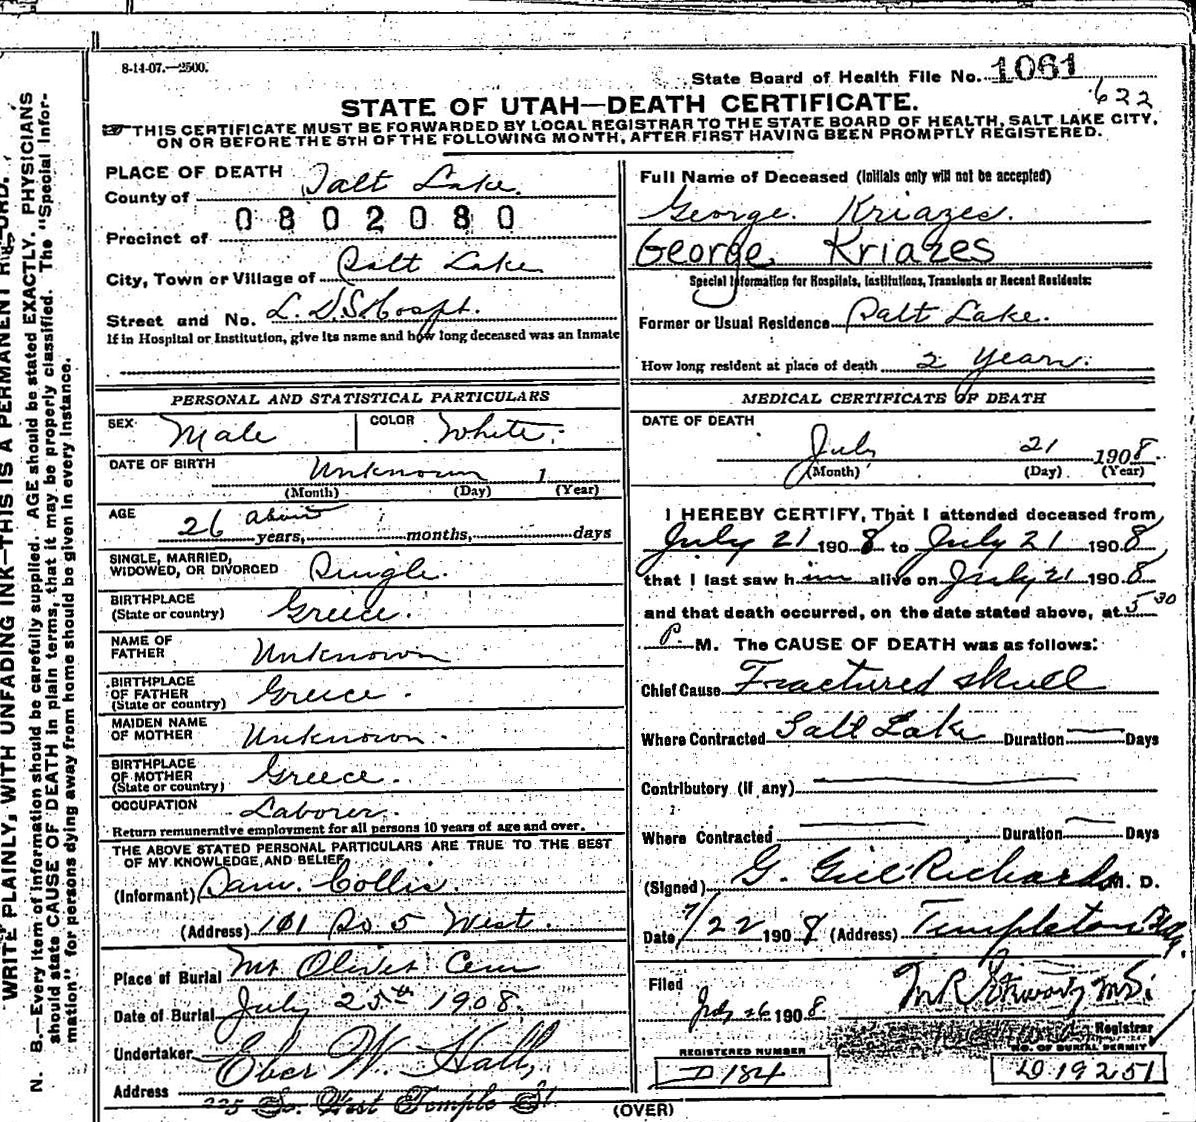 8-14-07.—2500.
State Board of Health File No. 1061
622
STATE OF UTAH—DEATH CERTIFICATE.
THIS CERTIFICATE MUST BE FORWARDED BY LOCAL REGISTRAR TO THE STATE BOARD OF HEALTH, SALT LAKE CITY,
ON OR BEFORE THE 5TH OF THE FOLLOWING MONTH, AFTER FIRST HAVING BEEN PROMPTLY REGISTERED.
PLACE OF DEATH
County of Salt Lake.
0802080
Precinct of
City, Town or Village of Salt Lake
Street and No. L. D. S. Hospt.
If in Hospital or Institution, give its name and how long deceased was an Inmate
Full Name of Deceased (Initials only will not be accepted)
George Kriazes.
George Kriazes
Special Information for Hospitals, Institutions, Transients or Recent Residents:
Former or Usual Residence Salt Lake.
How long resident at place of death 2 Years.
PERSONAL AND STATISTICAL PARTICULARS
SEX Male COLOR White.
DATE OF BIRTH Unknown 1
(Month) (Day) (Year)
AGE 26 about years, months, days
SINGLE, MARRIED,
WIDOWED, OR DIVORCED Single.
BIRTHPLACE
(State or country) Greice.
NAME OF
FATHER Unknown
BIRTHPLACE
OF FATHER Greice.
(State or country)
MAIDEN NAME
OF MOTHER Unknown.
BIRTHPLACE
OF MOTHER Greece.
(State or country)
OCCUPATION Laborer.
Return remunerative employment for all persons 10 years of age and over.
THE ABOVE STATED PERSONAL PARTICULARS ARE TRUE TO THE BEST
OF MY KNOWLEDGE, AND BELIEF
(Informant) Sam. Collis.
(Address) 101 So 5 West.
Place of Burial Mt Olivet Cem
Date of Burial July 25th 1908.
Undertaker Eber W. Hall,
Address 225 So. West Temple St
MEDICAL CERTIFICATE OF DEATH
DATE OF DEATH
July 21 1908.
(Month) (Day) (Year)
I HEREBY CERTIFY, That I attended deceased from
July 21 1908 to July 21 1908,
that I last saw him alive on July 21 1908
and that death occurred, on the date stated above, at 5 30
P. M. The CAUSE OF DEATH was as follows:
Chief Cause Fractured skull
Where Contracted Salt Lake Duration — Days
Contributory (if any)
Where Contracted Duration Days
(Signed) G. Gill Richards M. D.
Date 7/22 1908 (Address) Templeton Bldg.
Filed
July 26 1908
Registrar
REGISTERED NUMBER
D 184
NO. OF BURIAL PERMIT
D 19251
(OVER)
WRITE PLAINLY, WITH UNFADING INK—THIS IS A PERMANENT RECORD.
N. B.—Every item of information should be carefully supplied. AGE should be stated EXACTLY. PHYSICIANS
should state CAUSE OF DEATH in plain terms, that it may be properly classified. The "Special Infor-
mation" for persons dying away from home should be given in every instance.